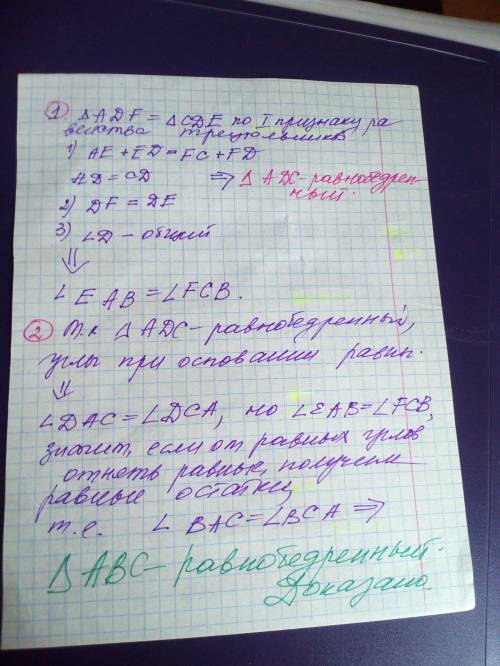 1. △ADF = △CDE по I признаку ра
венства треугольников
1) AE + ED = FC + FD
AD = CD ⇒ △ADC - равнобедрен-
ный.
2) DF = DE
3) ∠D - общий
⇓
∠EAB = ∠FCB.
2 Т.к △ADC - равнобедренный,
углы при основании равны.
⇓
∠DAC = ∠DCA, но ∠EAB = ∠FCB,
значит, если от равных углов
отнять равные, получим
равные остатки,
т.е. ∠BAC = ∠BCA ⇒
△ABC - равнобедренный.
Доказано.